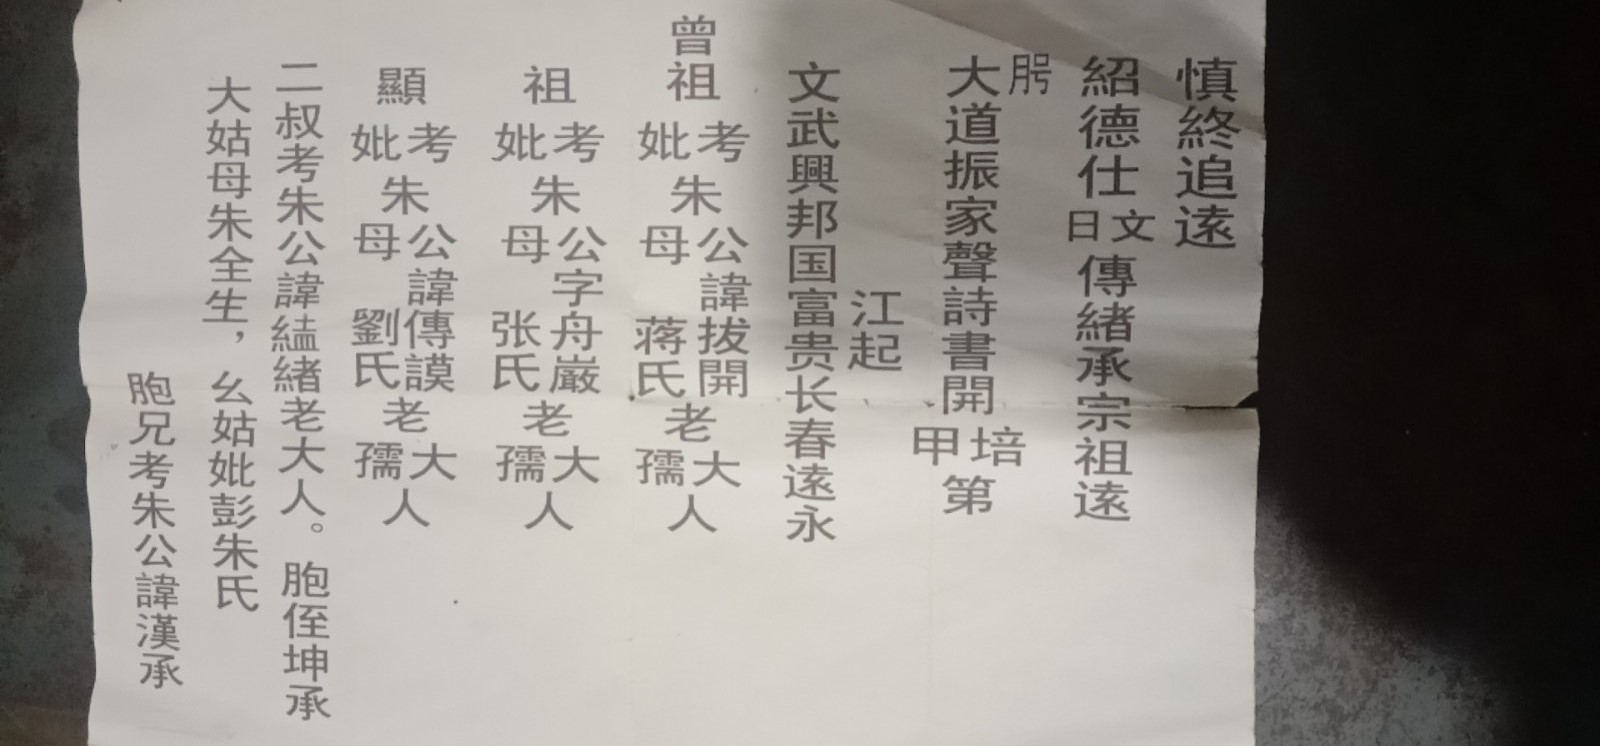 慎終追遠
紹德仕文日傳緒承宗祖遠
大道振家聲詩書開培甲第
江起
文武興邦国富贵长春遠永
曾祖考妣朱公諱拔開母蒋氏老大孺人
祖考妣朱公字舟巖母张氏老大孺人
顯考妣朱公諱傳謨母劉氏老大孺人
二叔考朱公諱緼緒老大人。胞侄坤承
大姑母朱全生，幺姑妣彭朱氏
胞兄考朱公諱漢承